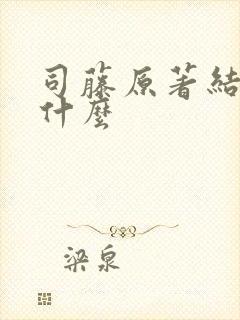 司藤原著結
什麼
梁泉